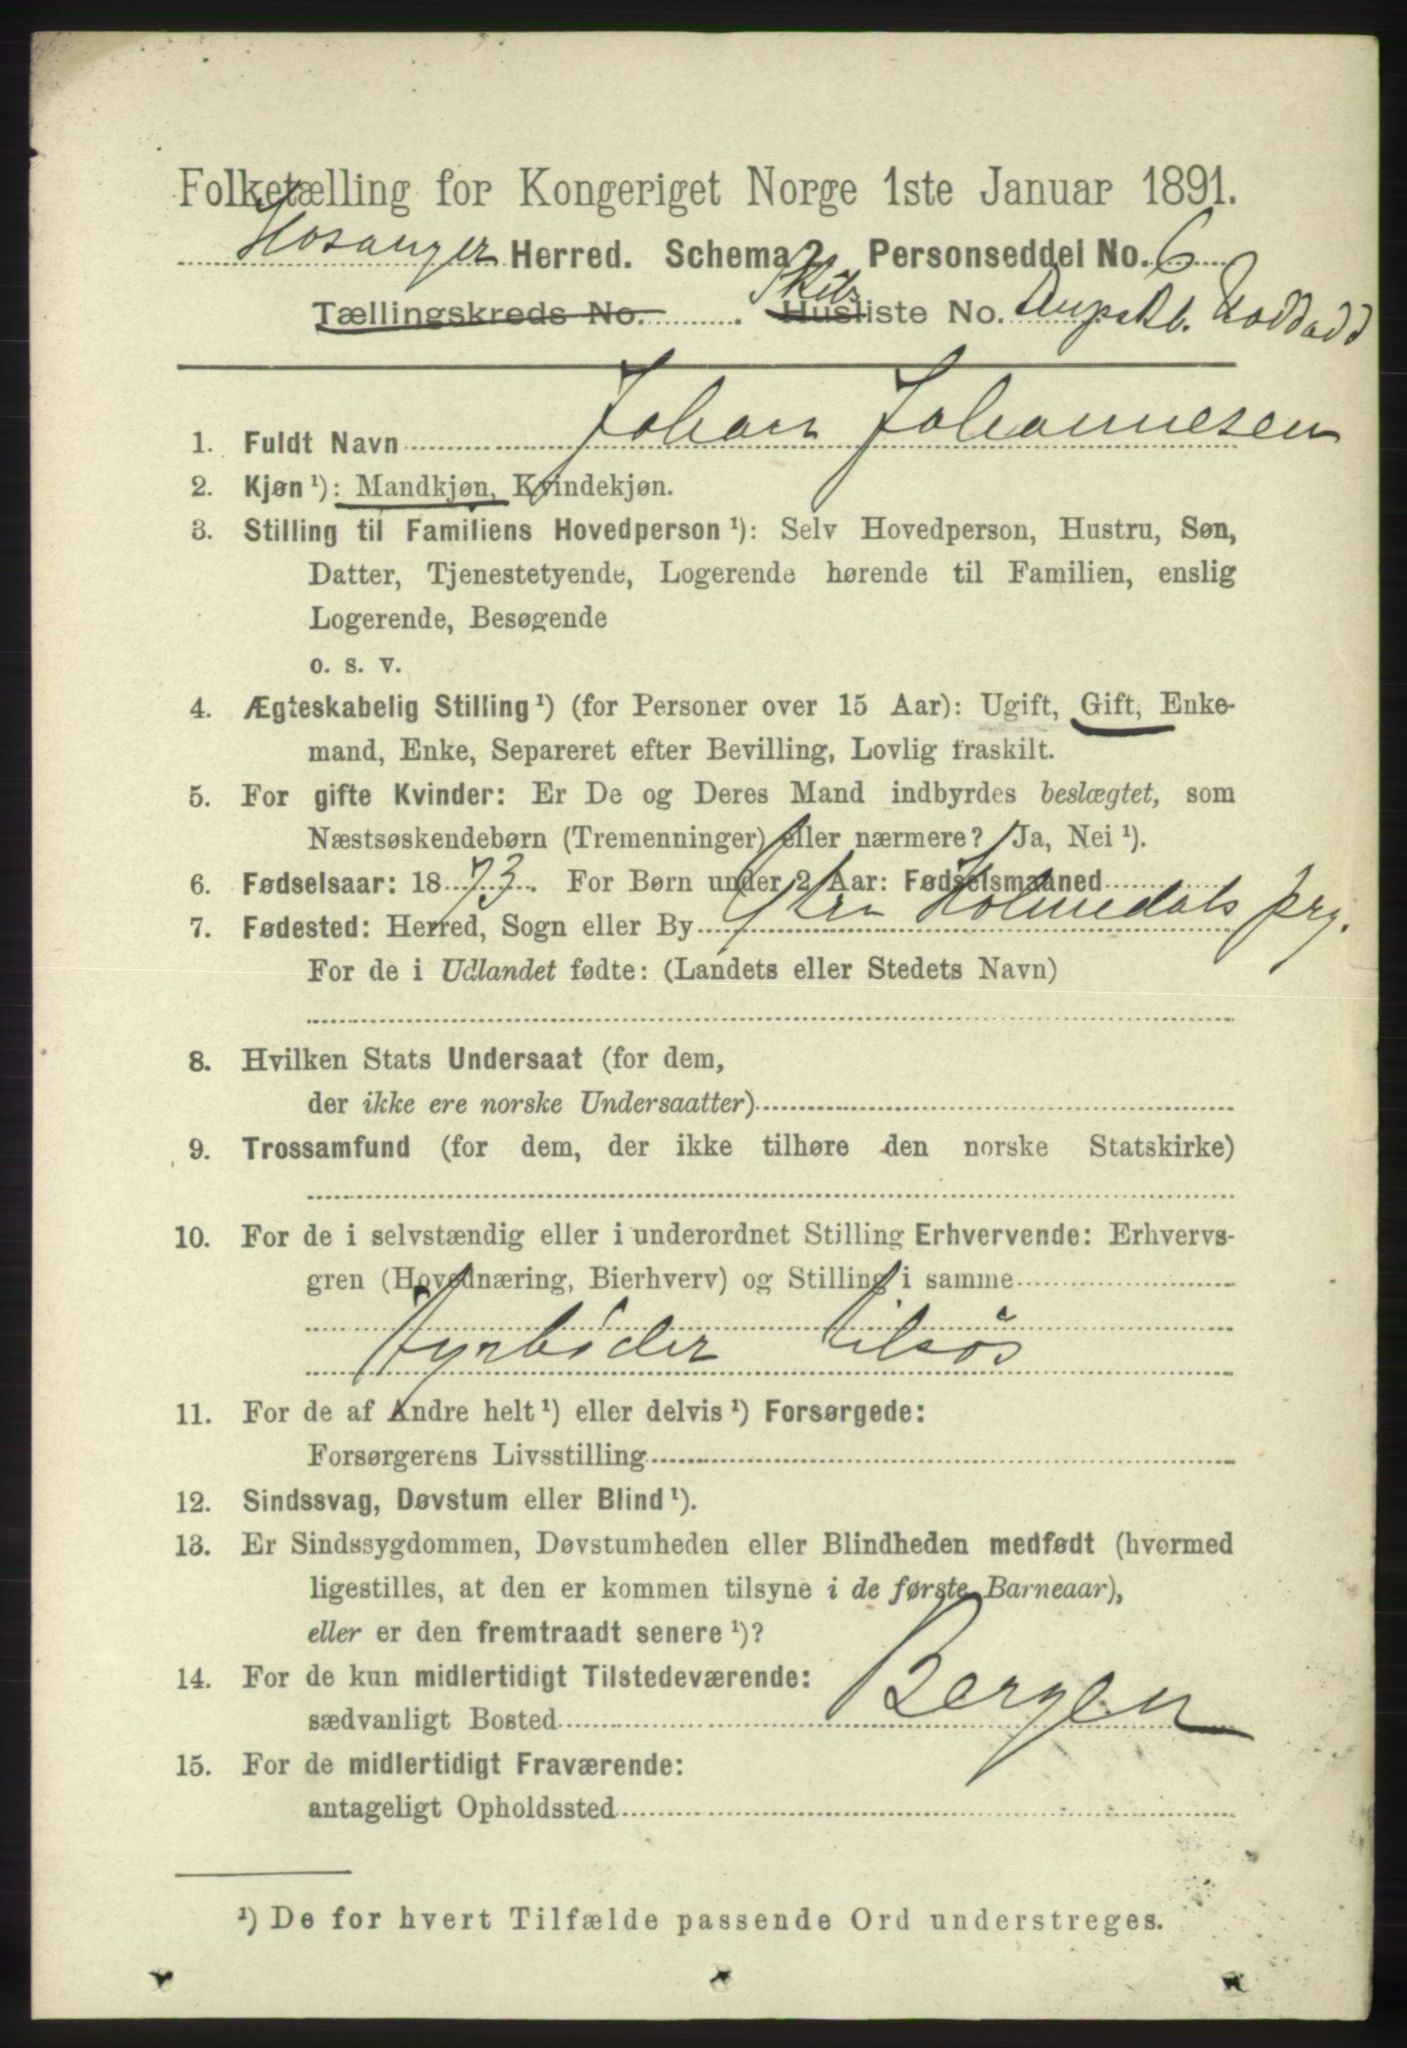 Folketælling for Kongeriget Norge 1ste Januar 1891.
Hosanger Herred. Schema 2. Personseddel No. 6
Tællingskreds No. . Skibs Husliste No. Dampsk.
1. Fuldt Navn Johan Johannesen
2. Kjøn ¹): Mandkjøn, Kvindekjøn.
3. Stilling til Familiens Hovedperson ¹): Selv Hovedperson, Hustru, Søn,
Datter, Tjenestetyende, Logerende hørende til Familien, enslig
Logerende, Besøgende
o. s. v.
4. Ægteskabelig Stilling ¹) (for Personer over 15 Aar): Ugift, Gift, Enke-
mand, Enke, Separeret efter Bevilling, Lovlig fraskilt.
5. For gifte Kvinder: Er De og Deres Mand indbyrdes beslægtet, som
Næstsøskendebørn (Tremenninger) eller nærmere? Ja, Nei ¹).
6. Fødselsaar: 18 73. For Børn under 2 Aar: Fødselsmaaned
7. Fødested: Herred, Sogn eller By Ytre Holmedals prg.
For de i Udlandet fødte: (Landets eller Stedets Navn)
8. Hvilken Stats Undersaat (for dem,
der ikke ere norske Undersaatter)
9. Trossamfund (for dem, der ikke tilhøre den norske Statskirke)
10. For de i selvstændig eller i underordnet Stilling Erhvervende: Erhvervs-
gren (Hovednæring, Bierhverv) og Stilling i samme
Fyrbøder tilsøs
11. For de af Andre helt ¹) eller delvis ¹) Forsørgede:
Forsørgerens Livsstilling
12. Sindssvag, Døvstum eller Blind ¹).
13. Er Sindssygdommen, Døvstumheden eller Blindheden medfødt (hvormed
ligestilles, at den er kommen tilsyne i de første Barneaar),
eller er den fremtraadt senere ¹)?
14. For de kun midlertidigt Tilstedeværende:
sædvanligt Bosted Bergen
15. For de midlertidigt Fraværende:
antageligt Opholdssted
¹) De for hvert Tilfælde passende Ord understreges.